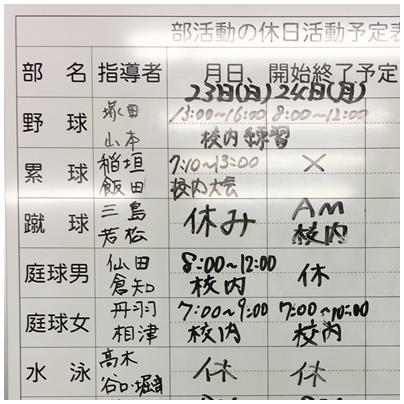 部活動の休日活動予定表
部 名 指導者 月日、開始終了予定
23日(日) 24日(月)
野 球 塚田 13:00~16:00 8:00~12:00
山本 校内練習
累 球 稲垣 7:10~13:00 ×
飯田 校内大会
蹴 球 三島 休み AM
若松 校内
庭球男 仙田 8:00~12:00 休
倉知 校内
庭球女 丹羽 7:00~9:00 7:00~10:00
相津 校内 校内
水 泳 高木 休 休
谷口・堀部